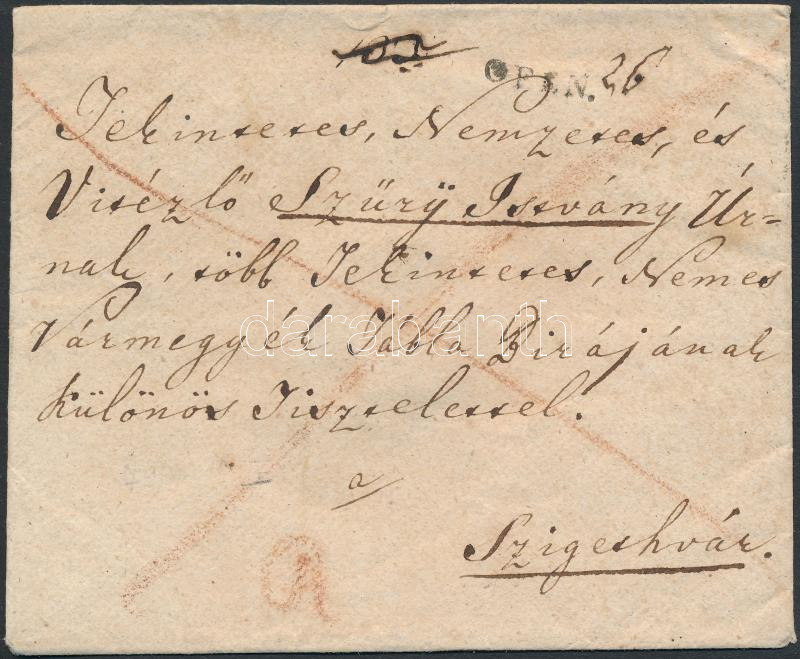 OFEN. 26
Tekintetes, Nemzetes, és
Vitézlő Szűrÿ Istvány Úr=
nak, több Tekintetes, Nemes
Vármegyék Tábla Birájának
különös Tisztelettel.
darabanth
a
Szigethvár.